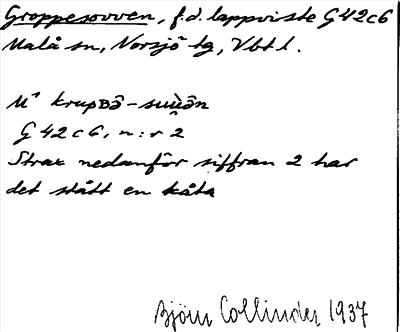 Groppesovven, f.d. lappviste G42c6
Malå sn, Norsjö tg, Vbt l.
G42c6, n:r 2
Strax nedanför siffran 2 har
det stått en kåta
Björn Collinder 1937